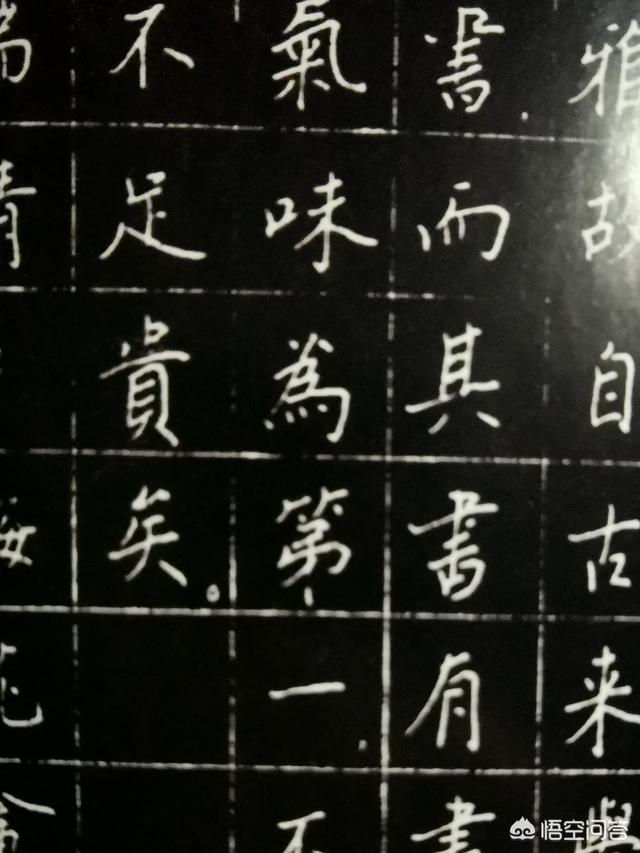 雅故自古来學
書，而其書有書
氣味為第一，不
不足貴矣。
悟空问答